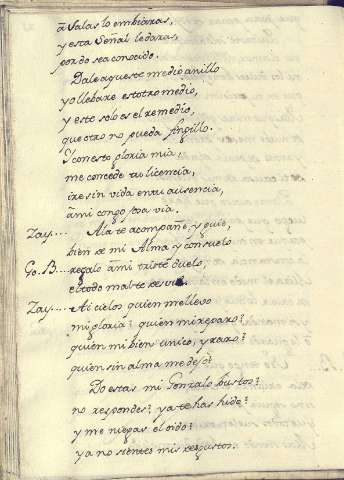 a Salas lo embiaras,
y esta Señal le daras,
por do sea conocido.
Dale aqueste medio anillo
yo llebare estotro medio,
y este solo es el remedio,
que otro no pueda fingillo.
Y con esto gloria mia,
me concede tu licencia,
ire sin vida en tu ausencia,
a mi congoxosa via.
Zay.... Ala te acompañe, y guie,
bien de mi Alma y consuelo
Go. B.... regalo a mi triste duelo,
el todo mal te desvie.
Zay.... Ai cielos quien me llevo
mi gloria? quien mi reparo?
quien mi bien unico, y raro?
quien sin alma me dejó?
Do estas mi Gonzalo bustos?
no respondes? ya te has hido?
y me niegas el oido?
ya no sientes mis disgustos.